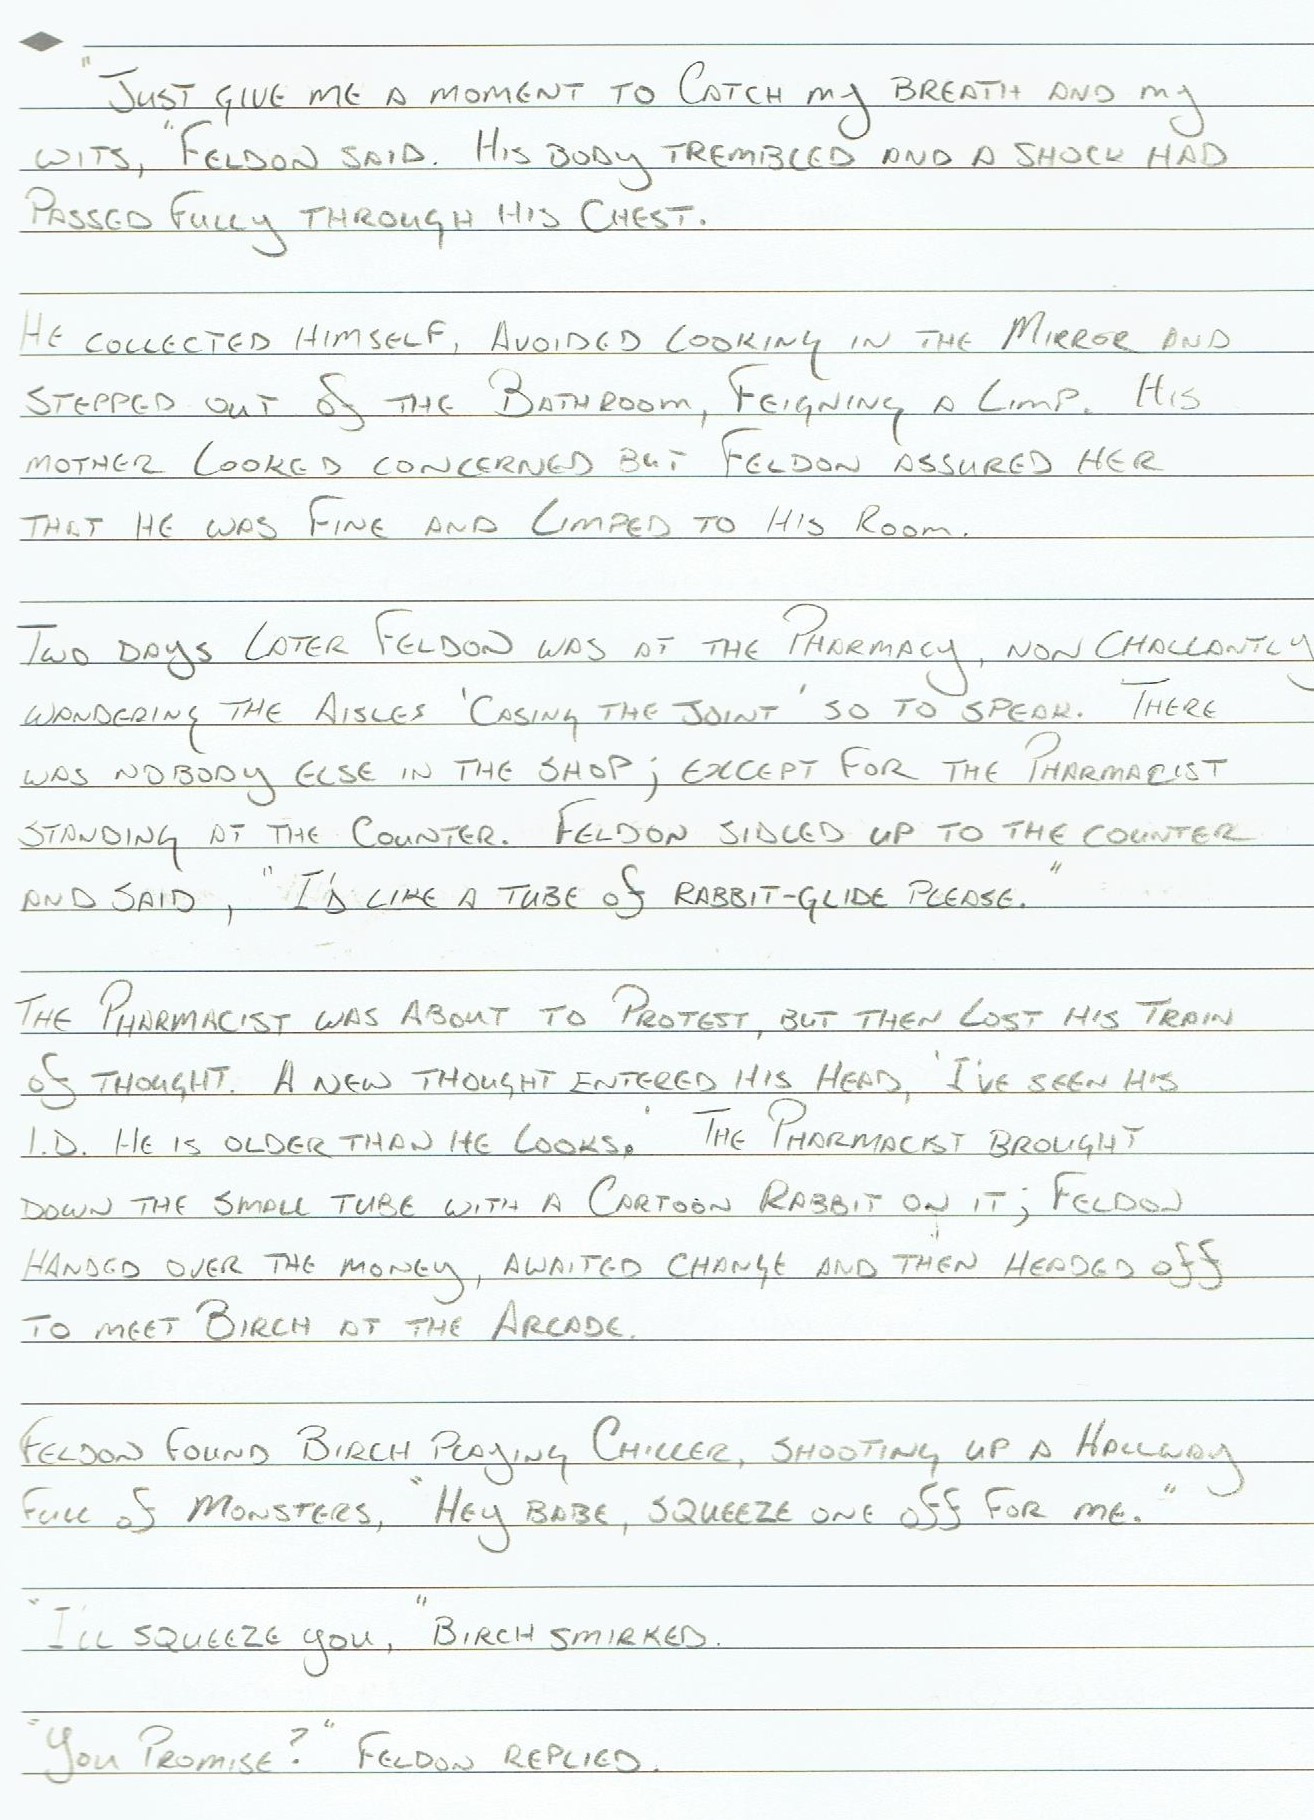 "Just give me a moment to Catch my breath and my
wits," Feldon said. His body trembled and a shock had
Passed Fully through his Chest.
He collected himself, Avoided looking in the Mirror and
stepped out of the Bathroom, Feigning a Limp. His
mother Looked concerned but Feldon assured her
that he was Fine and Limped to his Room.
Two days Later Feldon was at the Pharmacy, non challantly
wandering the Aisles 'Casing the Joint' so to speak. There
was nobody else in the shop; except for the Pharmacist
standing at the Counter. Feldon sidled up to the counter
and said, "I'd like a tube of rabbit-glide please."
The Pharmacist was about to Protest, but then Lost his Train
of thought. A new thought entered his Head, 'I've seen his
I.D. He is older than he looks.' The Pharmacist brought
down the small tube with a Cartoon Rabbit on it; Feldon
handed over the money, awaited change and then headed off
to meet Birch at the Arcade.
Feldon Found Birch Playing Chiller, shooting up a Hallway
Full of Monsters, "Hey babe, squeeze one off for me."
"I'll squeeze you," Birch smirked.
"You Promise?" Feldon replied.